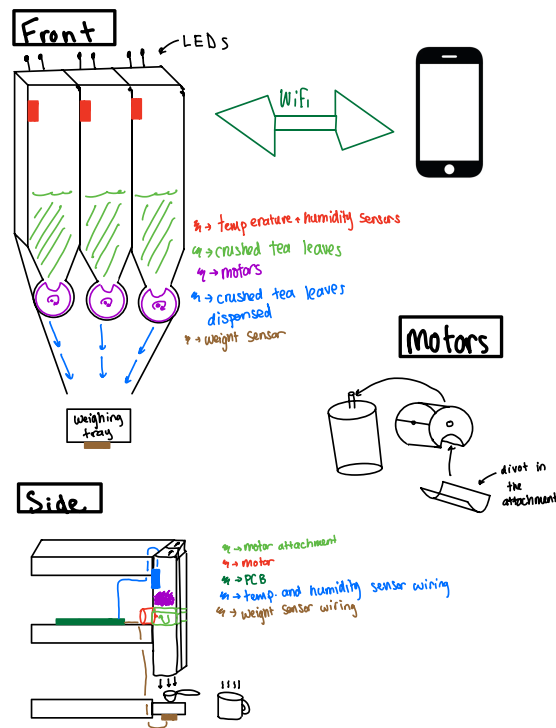 Front
LEDs
WiFi
→ temperature + humidity sensors
→ crushed tea leaves
→ motors
→ crushed tea leaves
dispensed
→ weight sensor
weighing
tray
Motors
divot in
the
attachment
Side
→ motor attachment
→ motor
→ PCB
→ temp. and humidity sensor wiring
→ weight sensor wiring